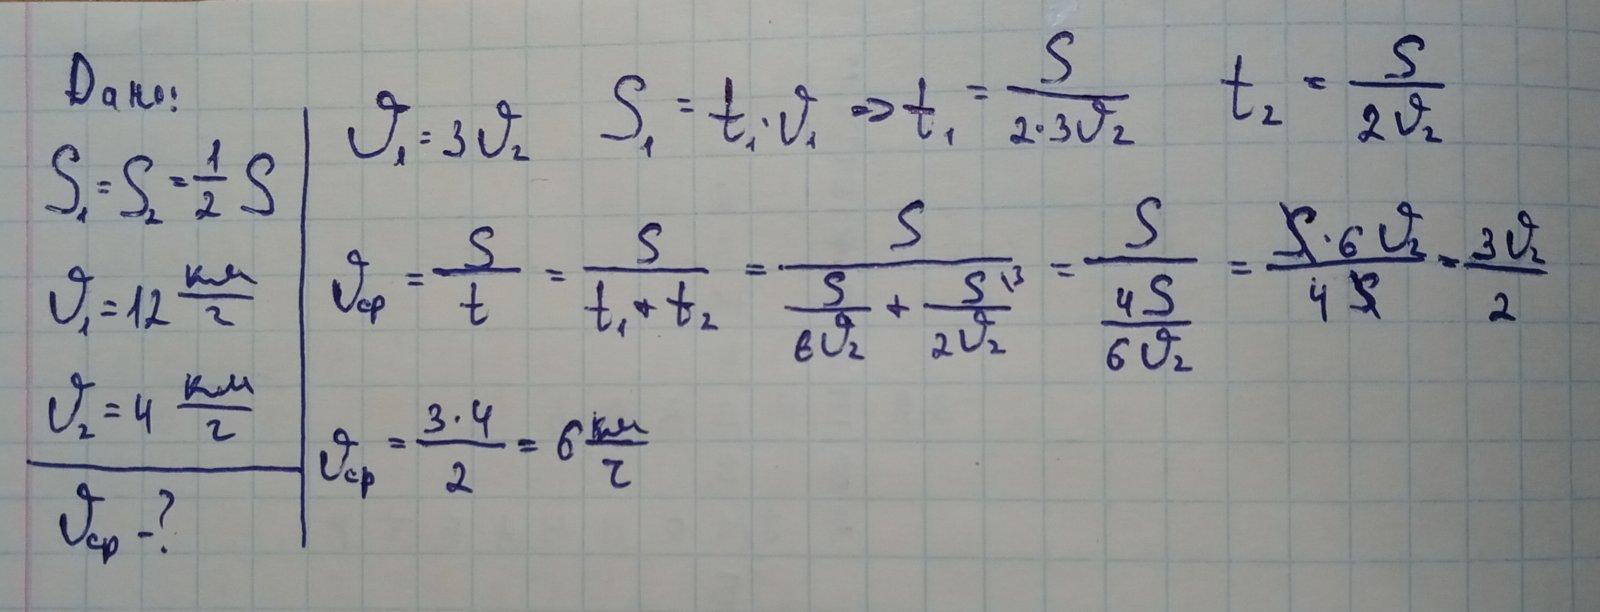 Дано:
S₁ = S₂ = 1/2 S
ϑ₁ = 12 км/ч
ϑ₂ = 4 км/ч
ϑср - ?
ϑ₁ = 3ϑ₂ S₁ = t₁·ϑ₁ => t₁ = S/(2·3ϑ₂) t₂ = S/(2ϑ₂)
ϑср = S/t = S/(t₁ + t₂) = S/(S/(6ϑ₂) + S\3/(2ϑ₂)) = S/(4S/(6ϑ₂)) = S·6ϑ₂/(4S) = 3ϑ₂/2
ϑср = 3·4/2 = 6 км/ч